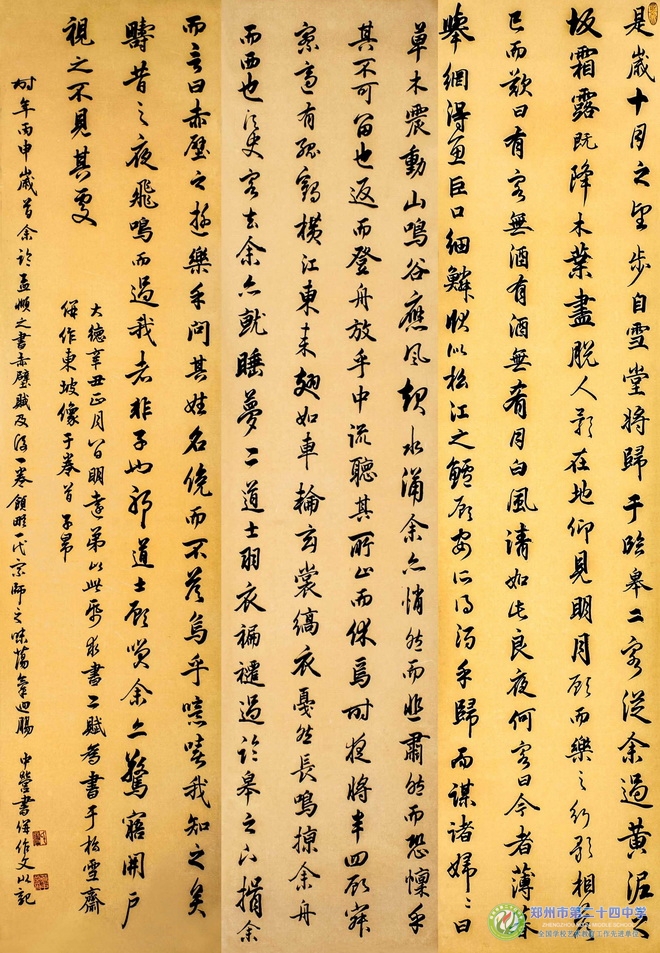 是歲十月之望步自雪堂將歸于臨皋二客從余過黃泥之
坂霜露既降木葉盡脫人影在地仰見明月顧而樂之行歌相答
已而歎曰有客無酒有酒無肴月白風清如此良夜何客曰今者薄暮
舉網得魚巨口細鱗狀似松江之鱸顧安所得酒乎歸而謀諸婦婦曰
草木震動山鳴谷應風起水涌余亦悄然而悲肅然而恐懍乎
其不可留也返而登舟放乎中流聽其所止而休焉時夜將半四顧寂
寥適有孤鶴橫江東來翅如車輪玄裳縞衣戛然長鳴掠余舟
而西也須臾客去余亦就睡夢二道士羽衣褊褼過臨皋之下揖余
而言曰赤壁之遊樂乎問其姓名俛而不答烏乎噫嘻我知之矣
疇昔之夜飛鳴而過我者非子也邪道士顧笑余亦驚寤開戶
視之不見其處
大德辛丑正月八日明遠弟以此紙求書二賦為書于松雪齋
併作東坡像于卷首子昂
時年丙申歲首余臨孟頫之書赤壁賦及後一卷領略一代宗師之味蕩氣迴腸 中瑩書併作文以記
郑州市第二十四中学
全国学校艺术教育工作先进单位